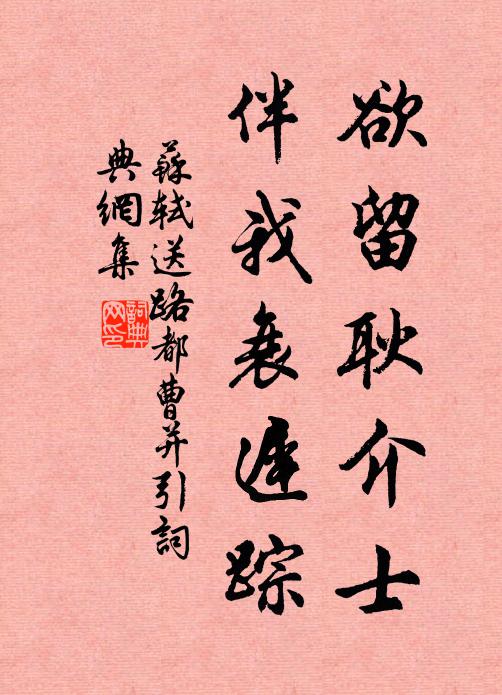 欲留耿介士
伴我衰遲踪
蘇軾送路都曹并引詞
典網集
詞典
网印